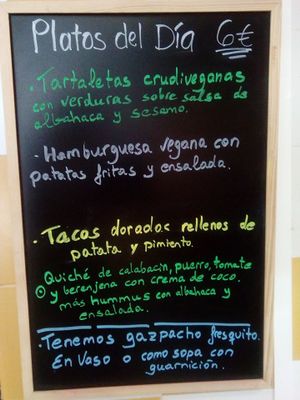 Platos del Día 6€
· Tartaletas crudiveganas
con verduras sobre salsa de
albahaca y sesamo.
· Hamburguesa vegana con
patatas fritas y ensalada.
· Tacos dorados rellenos de
patata y pimiento.
Quiché de calabacin, puerro, tomate
y berenjena con crema de coco.
más hummus con albahaca y
ensalada.
· Tenemos gazpacho fresquito.
En Vaso o como sopa con
guarnición.